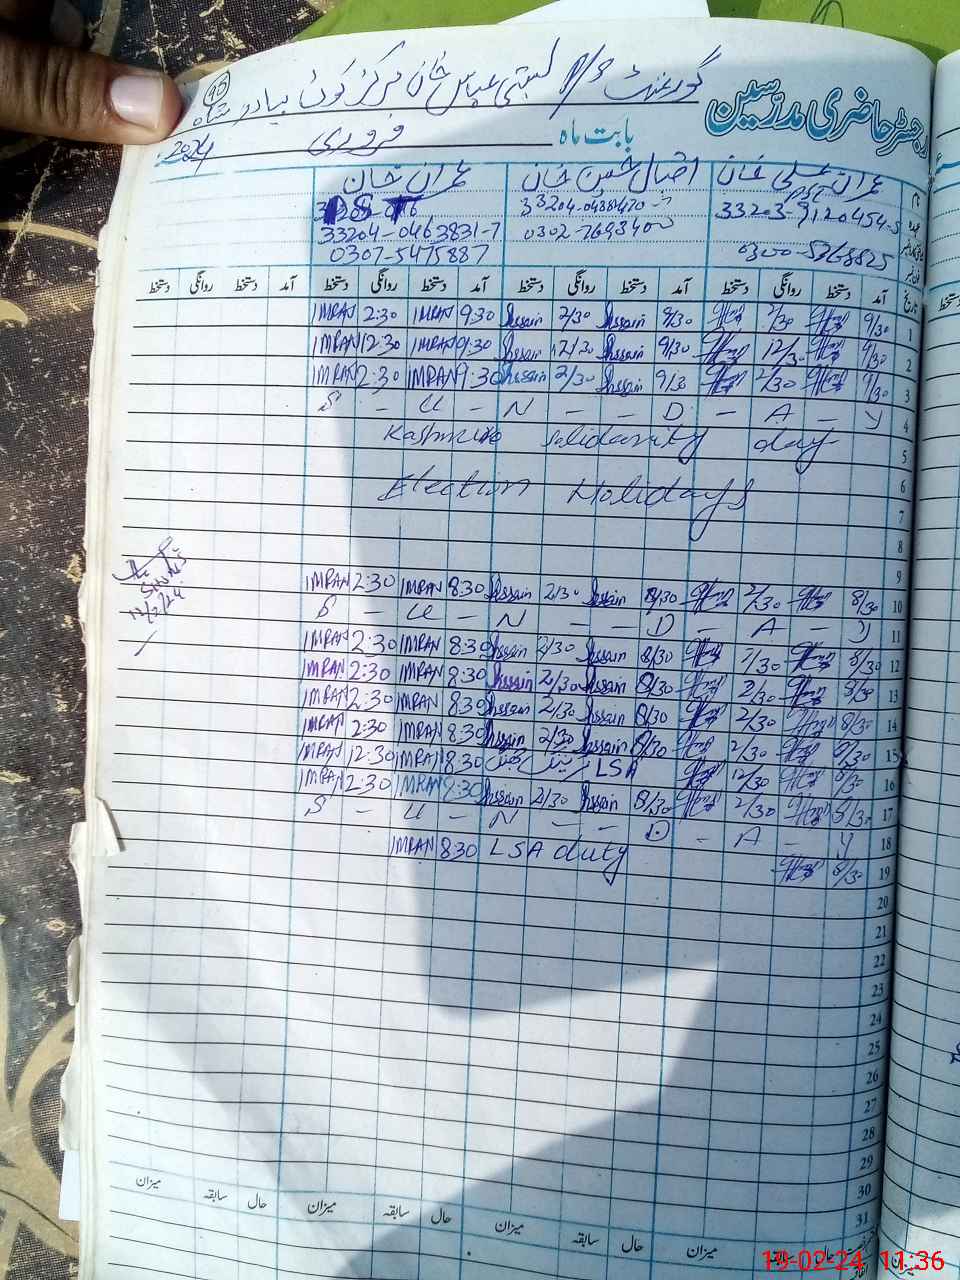 رجسٹر حاضری مدرسین
گورنمنٹ P/S بستی عباس خان مرکز کوٹ بہادر شاہ
95
بابت ماہ فروری 2024
عمران علی خان
حسین خان
عمران خان
33203-9120454-5
33204-0438420-5
33204-0463831-7
0300-5768825
0302-7693400
0307-5475887
تاریخ آمد دستخط روانگی دستخط آمد دستخط روانگی دستخط آمد دستخط روانگی دستخط آمد دستخط روانگی دستخط
IMRAN 2:30 IMRAN 9:30 Hussain 2/30 Hussain 9/30 2/30 9/30 1
IMRAN 12:30 IMRAN 9:30 Hussain 12/30 Hussain 9/30 12/30 9/30 2
IMRAN 2:30 IMRAN 9:30 Hussain 2/30 Hussain 9/30 2/30 9/30 3
S - U - N - - D - A - Y 4
Kashmir solidarity day 5
6
Election Holidays 7
8
9
IMRAN 2:30 IMRAN 8:30 Hussain 2/30 Hussain 8/30 2/30 8/30 10
S - U - N - - D - A - Y 11
IMRAN 2:30 IMRAN 8:30 Hussain 2/30 Hussain 8/30 2/30 8/30 12
IMRAN 2:30 IMRAN 8:30 Hussain 2/30 Hussain 8/30 2/30 8/30 13
IMRAN 2:30 IMRAN 8:30 Hussain 2/30 Hussain 8/30 2/30 8/30 14
IMRAN 2:30 IMRAN 8:30 Hussain 2/30 Hussain 8/30 2/30 8/30 15
IMRAN 12:30 IMRAN 8:30 LSA 12/30 8/30 16
IMRAN 2:30 IMRAN 8:30 Hussain 2/30 Hussain 8/30 2/30 8/30 17
S - U - N - - D - A - Y 18
IMRAN 8:30 LSA duty 8/30 19
20
21
22
23
24
25
26
27
28
29
30
31
میزان سابقہ حال میزان سابقہ حال میزان سابقہ حال میزان سابقہ
19-02-24 11:36